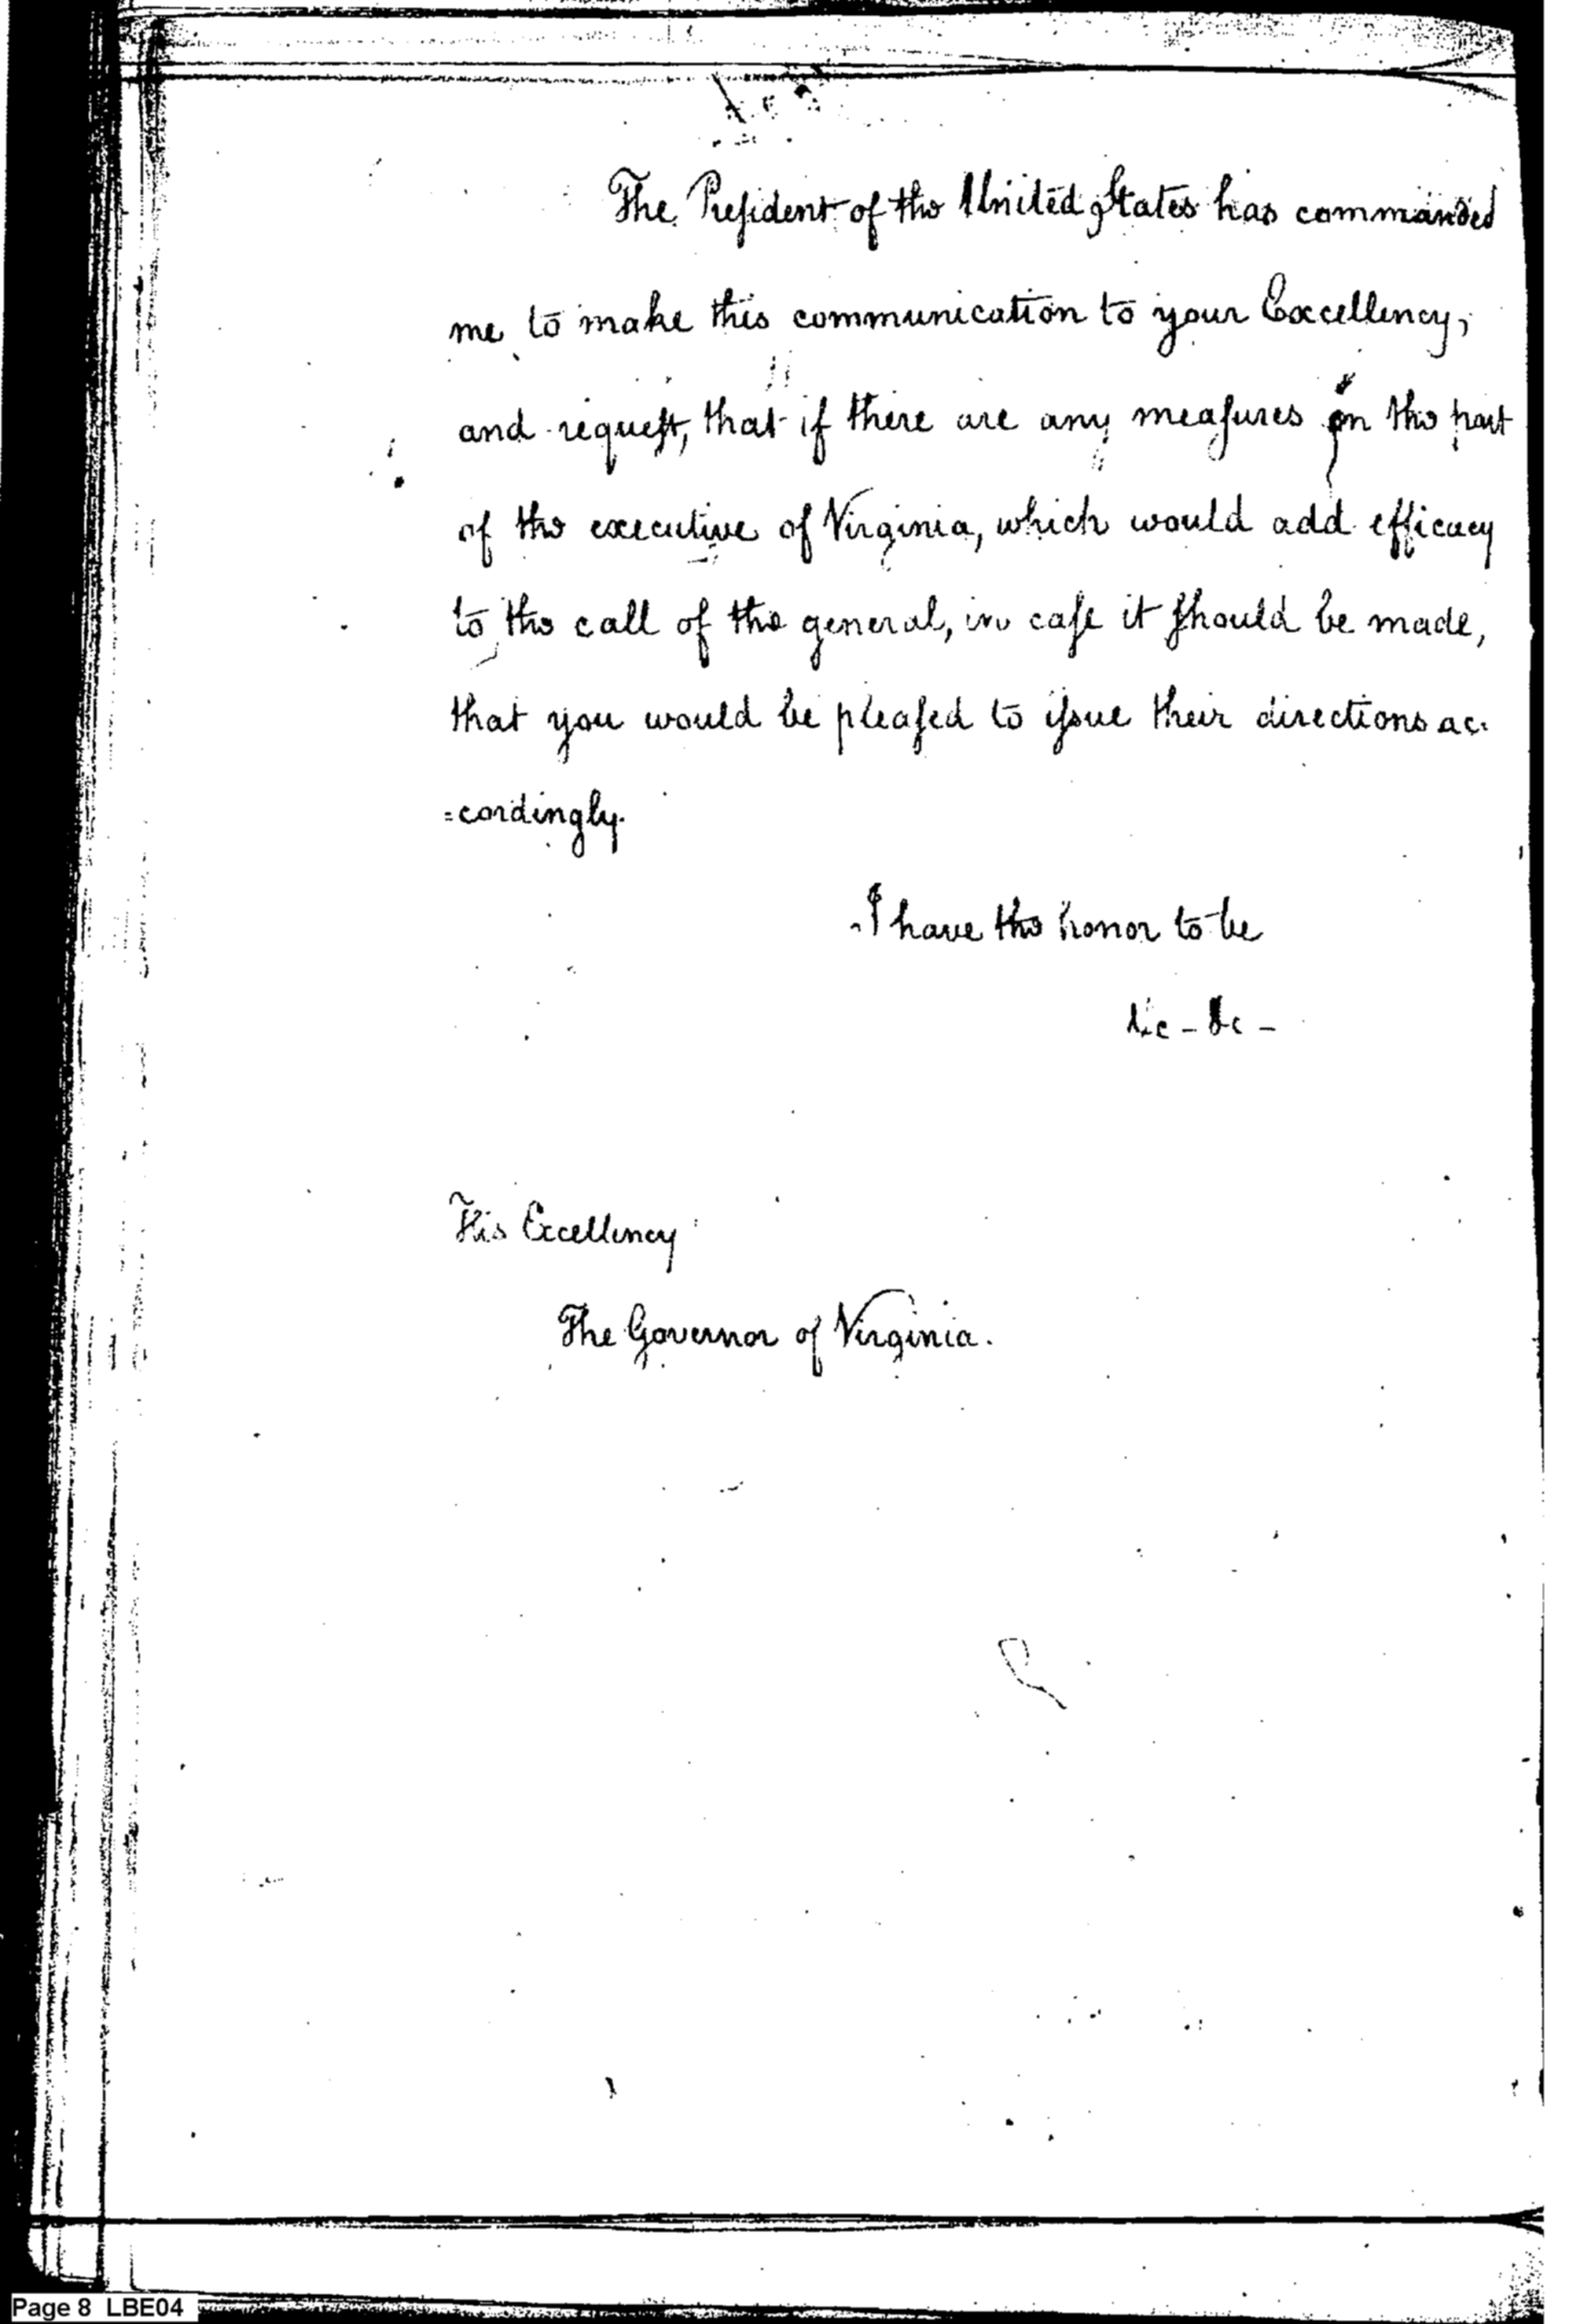 The Preſident of the United States has commanded
me to make this communication to your Excellency,
and requeſt, that if there are any meaſures on the part
of the executive of Virginia, which would add efficacy
to the call of the general, in caſe it ſhould be made,
that you would be pleaſed to iſsue their directions ac-
=cordingly.
I have the honor to be
&c - &c -
His Excellency
The Governor of Virginia.
Page 8 LBE04